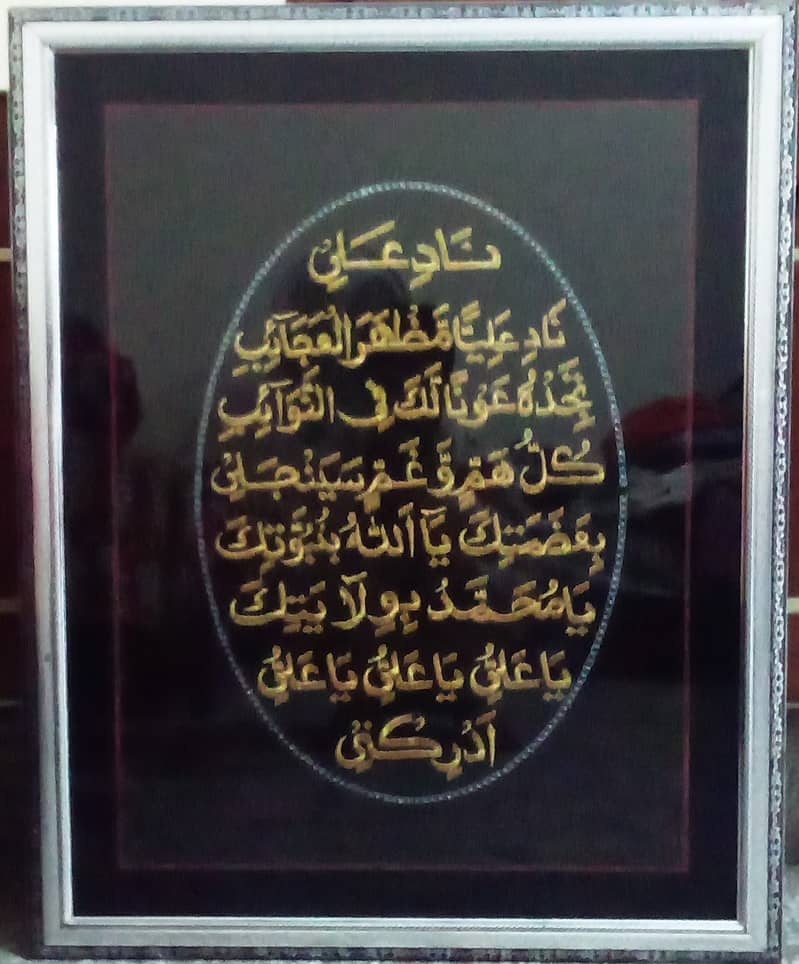 نَادِ عَلِيْ
نَادِ عَلِيًّا مَّظْهَرَ الْعَجَآئِبِ
تَجِدْهُ عَوْنًا لَّكَ فِی النَّوَآئِبِ
كُلُّ هَمٍّ وَّ غَمٍّ سَيَنْجَلِیْ
بِعَضَمَتِكَ يَآ اَللّٰهُ بِنُبُوَّتِكَ
يَا مُحَمَّدُ بِوِلَا يَتِكَ
يَا عَلِیُّ يَا عَلِیُّ يَا عَلِیُّ
اَدْرِكْنِیْ